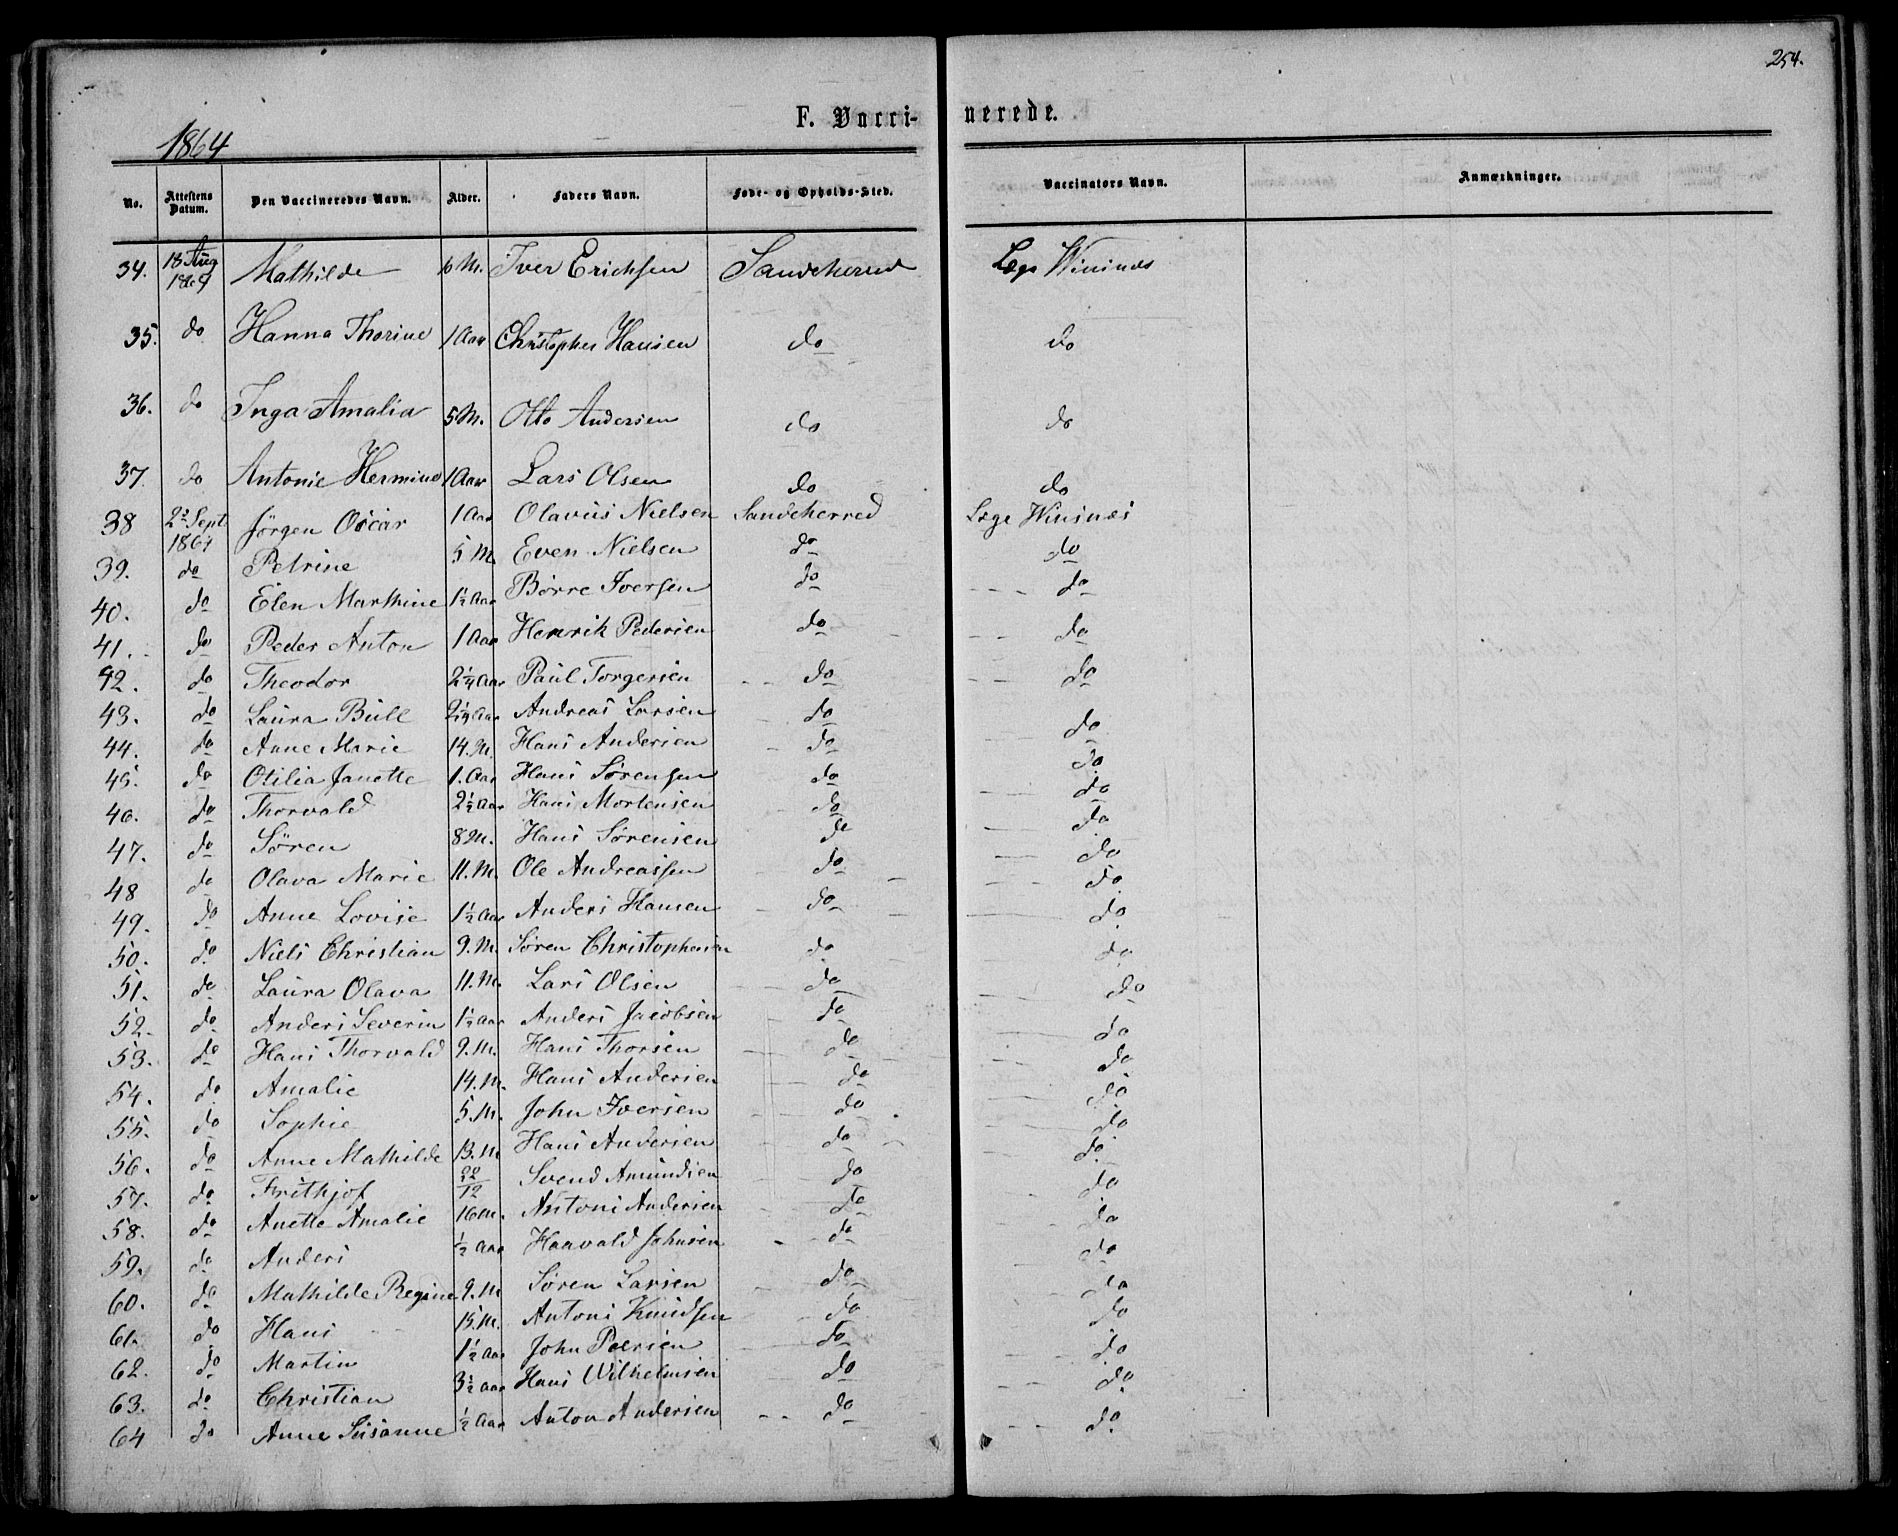 254.
F. Vacci- nerede.
1864
No. Attestens Datum. Den Vaccineredes Navn. Alder. Faders Navn. Føde- og Opholds-Sted. Vaccinators Navn. Anmærkninger.
34. 18 Aug 1864 Mathilde 6 M. Iver Erichsen Sandeherred Læge
35. do Hanna Thorine 1 Aar Christopher Hansen do do
36. do Inga Amalia 5 M. Otto Andersen do do
37. do Antonie Hermine 1 Aar Lars Olsen do do
38 Sept 1864 Jörgen Oscar 1 Aar Olavus Nielsen Sandeherred Læge
39. do Petrine 5 M. Even Nielsen do do
40. do Elen Marthine 1½ Aar Börre Iversen do do
41. do Peder Anton 1 Aar Henrik Pedersen do do
42. do Theodor 2¼ Aar Paul Torgersen do do
43. do Laura Bull 2¼ Aar Andreas Larsen do do
44. do Anne Marie 14. M Hans Andersen do do
45. do Otilia Janette 1. Aar Hans Sørensen do do
46. do Thorvald 2½ Aar Hans Mortensen do do
47. do Søren 8 M. Hans Sørensen do do
48 do Olava Marie 11. M. Ole Andreassen do do
49. do Anne Lovise 1½ Aar Anders Hansen do do
50. do Niels Christian 9. M. Søren Christophersen do do
51. do Laura Olava 11. M. Lars Olsen do do
52. do Anders Severin 1½ Aar Anders Jacobsen do do
53. do Hans Thorvald 9. M. Hans Thorsen do do
54. do Amalie 14. M. Hans Andersen do do
55. do Sophie 5. M. John Iversen do do
56. do Anne Mathilde 13. M Hans Andersen do do
57. do Frithjof Svend Amundsen do do
58. do Anette Amalie 16 M. Antoni Andersen do do
59. do Anders ½ Aar Haavald Johnsen do do
60. do Mathilde Regine 9. M Søren Larsen do do
61. do Hans 15. M. Antoni Knudsen do do
62. do Martin 1½ Aar John Paersen do do
63. do Christian 3½ Aar Hans Wilhelmsen do do
64 do Anne Susanne ½ Aar Anton Andersen do do.